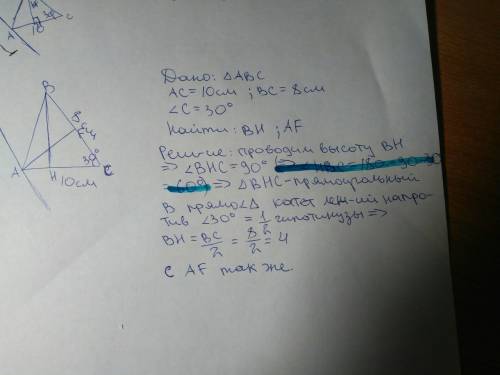 A
10
30
C
B
8см
30°
A
H
10см
C
Дано: △ABC
AC=10см ; BC=8см
∠C=30°
Найти: BH ; AF
Решение: проводим высоту BH
⇒ ∠BHC=90° (⇒ ∠HBC=180-90-30
=60°) ⇒ △BHC-прямоугольный
В прямо∠△ катет леж-ий напро-
тив ∠30° = 1/2 гипотинузы ⇒
BH = BC/2 = 8/2 = 4
С AF так же.